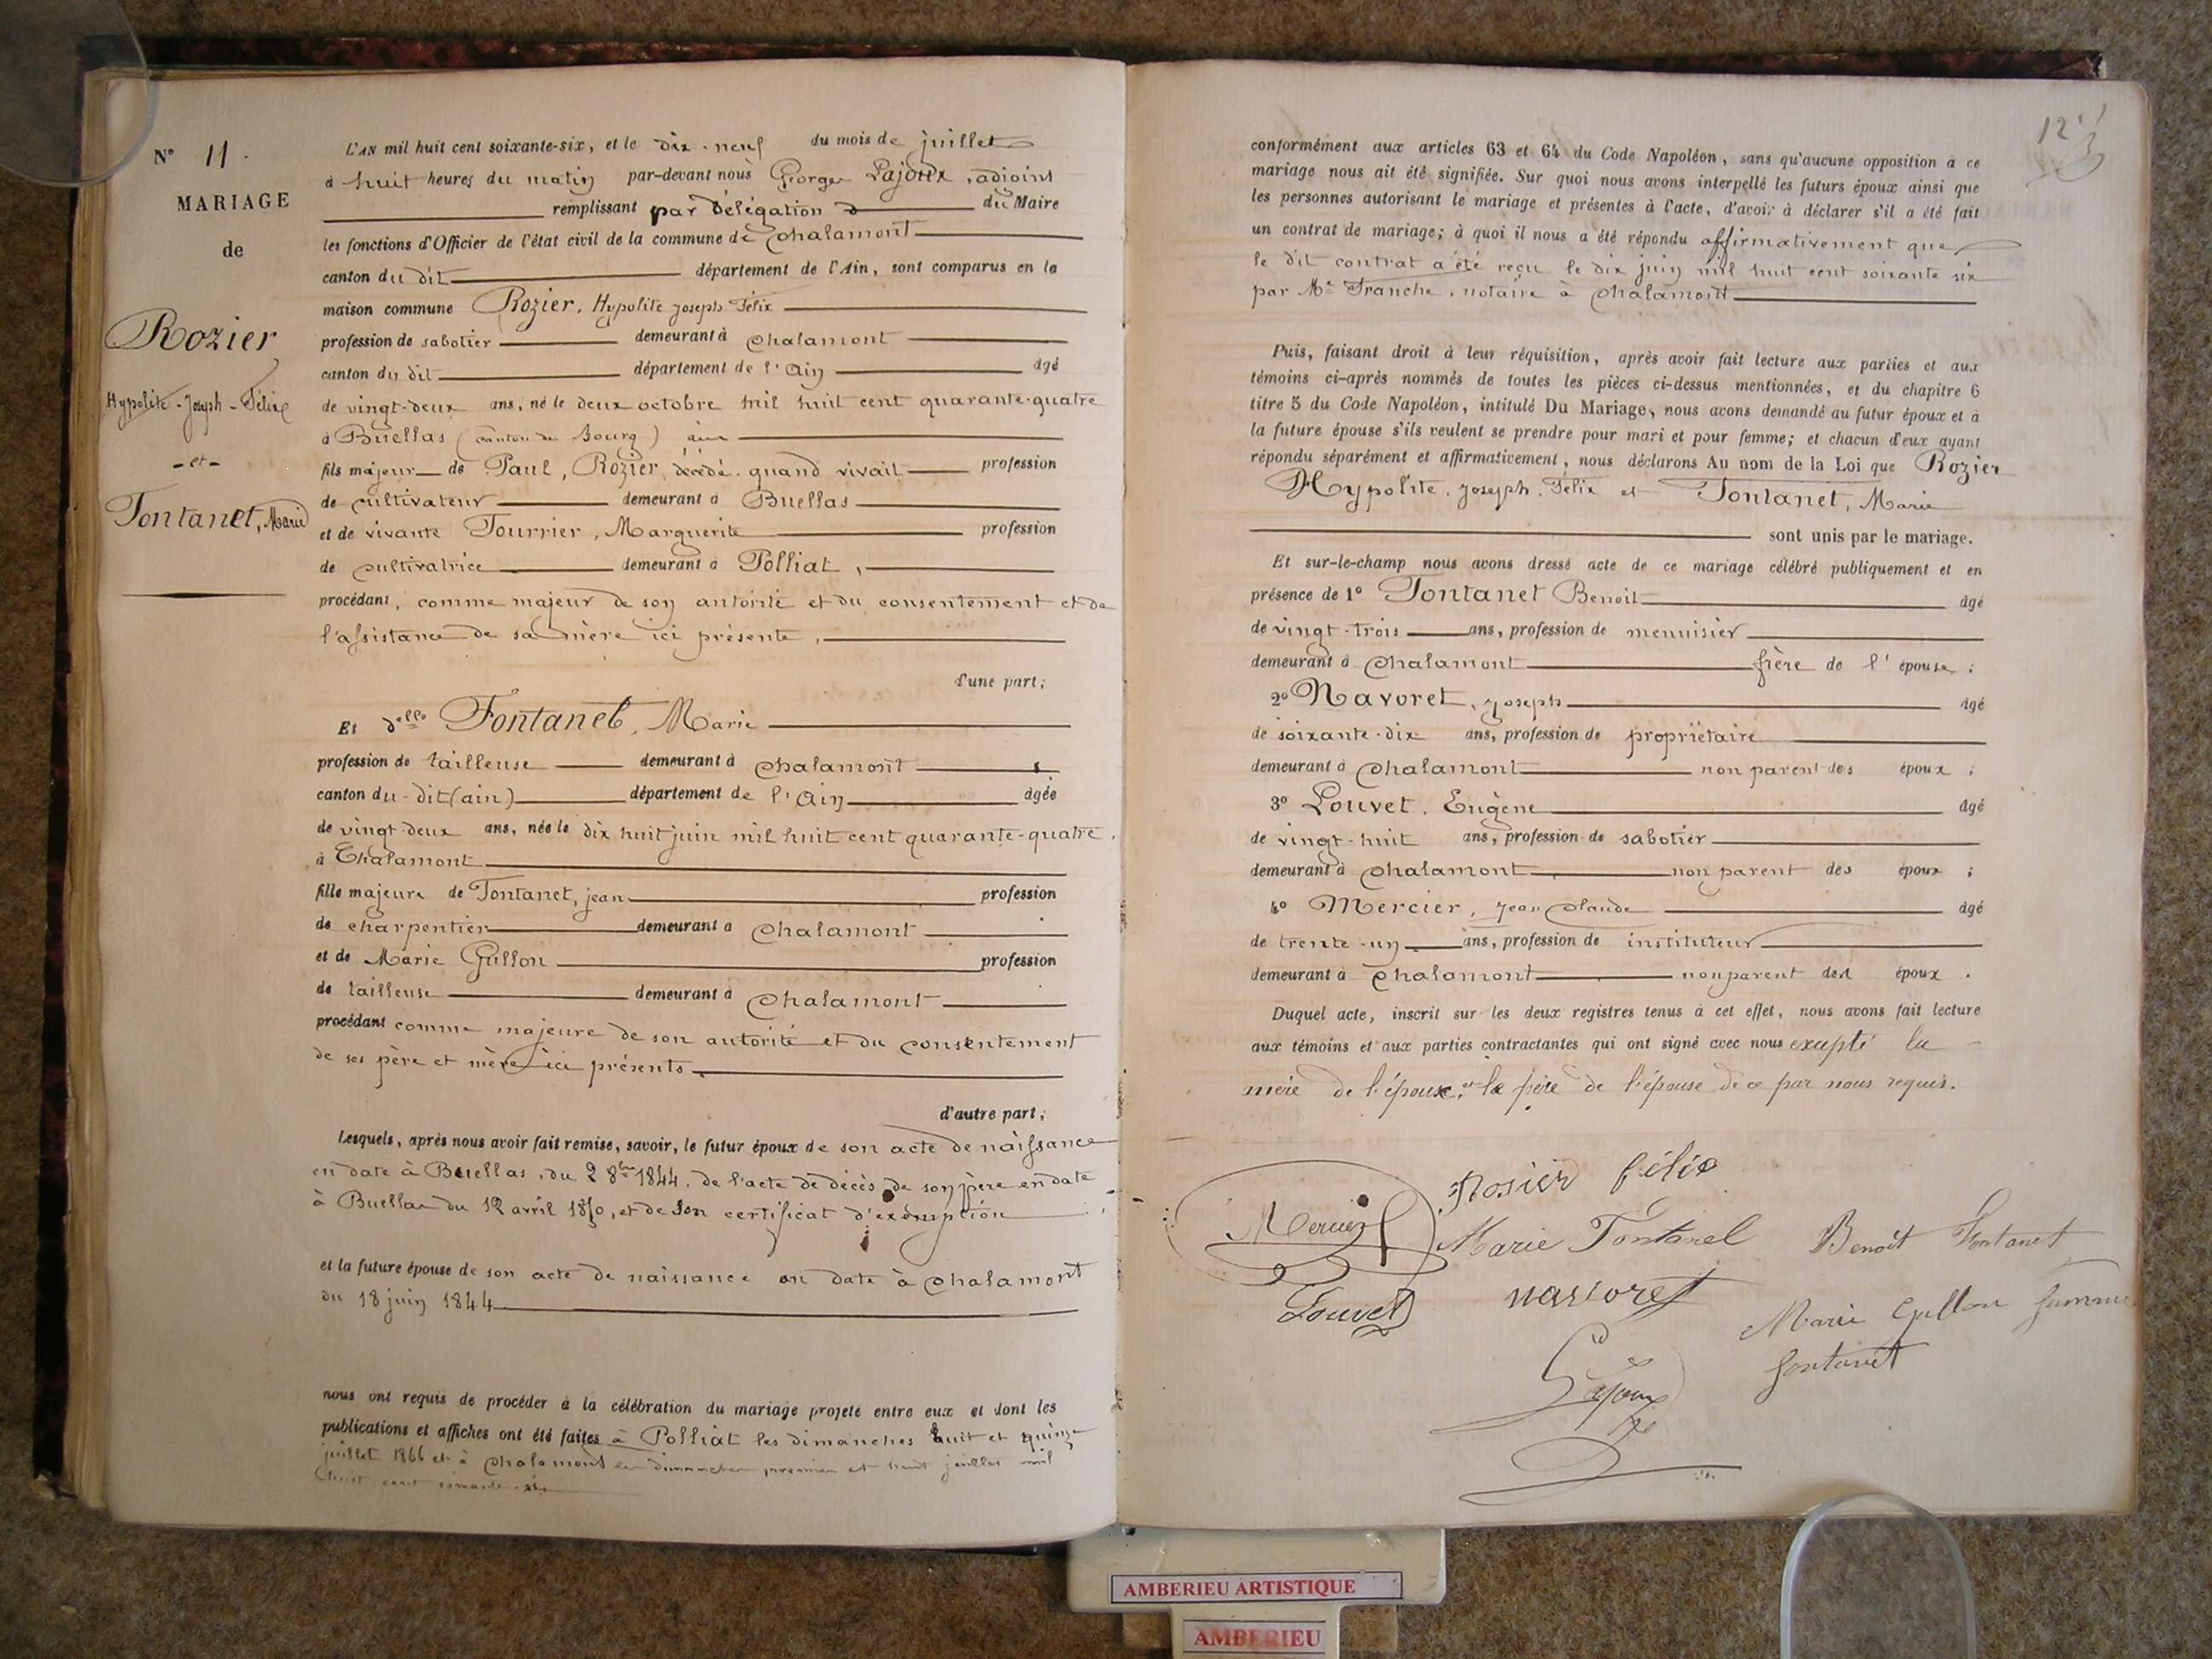 N° 11.
MARIAGE
de
Rozier
Hypolite-Joseph-Félix
-et-
Fontanet, Marie
L'AN mil huit cent soixante-six, et le dix-neuf du mois de juillet
à huit heures du matin par-devant nous George Lajoux, adjoint
remplissant par délégation du Maire
les fonctions d'Officier de l'état civil de la commune de Chalamont
canton du dit département de l'Ain, sont comparus en la
maison commune Rozier, Hypolite Joseph Félix
profession de sabotier demeurant à Chalamont
canton du dit département de l'Ain âgé
de vingt-deux ans, né le deux octobre mil huit cent quarante-quatre
à Buellas (canton de Bourg) ain
fils majeur de Paul, Rozier, décédé. quand vivait profession
de cultivateur demeurant à Buellas
et de vivante Fourrier, Marguerite profession
de cultivatrice demeurant à Polliat,
procédant, comme majeur de son autorité et du consentement et de
l'assistance de sa mère ici présente,
d'une part;
Et delle Fontanet, Marie
profession de tailleuse demeurant à Chalamont
canton du-dit (ain) département de l'Ain âgée
de vingt-deux ans, née le dix huit juin mil huit cent quarante-quatre,
à Chalamont
fille majeure de Fontanet, jean profession
de charpentier demeurant à Chalamont
et de Marie Gullon profession
de tailleuse demeurant à Chalamont
procédant comme majeure de son autorité et du consentement
de ses père et mère ici présents
d'autre part;
Lesquels, après nous avoir fait remise, savoir, le futur époux de son acte de naissance
en date à Buellas, du 2 8bre 1844, de l'acte de décès de son père en date
à Buellas du 12 avril 1850, et de son certificat d'exemption
et la future épouse de son acte de naissance en date à Chalamont
du 18 juin 1844
nous ont requis de procéder à la célébration du mariage projeté entre eux et dont les
publications et affiches ont été faites à Polliat les dimanches huit et quinze
juillet 1866 et à Chalamont les dimanches premier et huit juillet mil
huit cent soixante-six
12
conformément aux articles 63 et 64 du Code Napoléon, sans qu'aucune opposition à ce
mariage nous ait été signifiée. Sur quoi nous avons interpellé les futurs époux ainsi que
les personnes autorisant le mariage et présentes à l'acte, d'avoir à déclarer s'il a été fait
un contrat de mariage; à quoi il nous a été répondu affirmativement que
le dit contrat a été reçu le dix juin mil huit cent soixante six
par Me Franche, notaire à Chalamont
Puis, faisant droit à leur réquisition, après avoir fait lecture aux parties et aux
témoins ci-après nommés de toutes les pièces ci-dessus mentionnées, et du chapitre 6
titre 5 du Code Napoléon, intitulé Du Mariage, nous avons demandé au futur époux et à
la future épouse s'ils veulent se prendre pour mari et pour femme; et chacun d'eux ayant
répondu séparément et affirmativement, nous déclarons Au nom de la Loi que Rozier
Hypolite, Joseph, Félix et Fontanet, Marie
sont unis par le mariage.
Et sur-le-champ nous avons dressé acte de ce mariage célébré publiquement et en
présence de 1° Fontanet Benoit âgé
de vingt-trois ans, profession de menuisier
demeurant à Chalamont frère de l'épouse;
2° Navoret, Joseph âgé
de soixante-dix ans, profession de propriétaire
demeurant à Chalamont non parent des époux;
3° Louvet, Eugène âgé
de vingt-huit ans, profession de sabotier
demeurant à Chalamont non parent des époux;
4° Mercier, Jean Claude âgé
de trente-un ans, profession de instituteur
demeurant à Chalamont non parent des époux.
Duquel acte, inscrit sur les deux registres tenus à cet effet, nous avons fait lecture
aux témoins et aux parties contractantes qui ont signé avec nous excepté la
mère de l'époux, et le père de l'épouse de ce par nous requis.
Rosier félix
Mercier
Marie Fontanel Benoît Fontanet
Louvet navoret
Marie Gullon femme
fontanet
Lajoux
AMBERIEU ARTISTIQUE
AMBERIEU